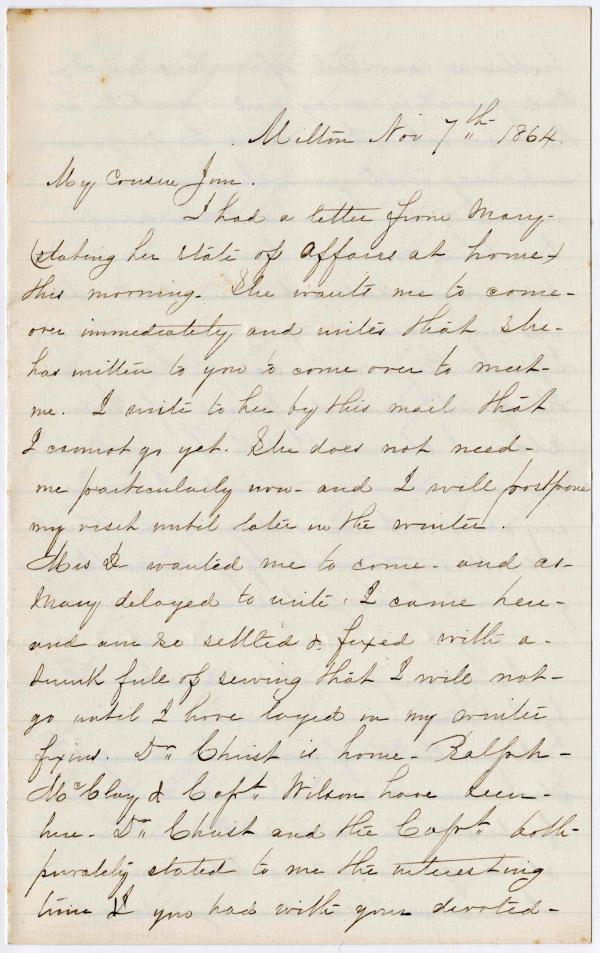 Milton Nov 7th 1864.
My Cousin Jim.
I had a letter from Mary-
(stating her state of affairs at home)
this morning. She wants me to come-
over immediately and writes that she-
has written to you to come over to meet-
me. I write to her by this mail that
I cannot go yet. She does not need-
me particularly now- and I will postpone
my visit until later in the winter.
Mrs D wanted me to come- and as-
Mary delayed to write. I came here-
and am so settled & fixed with a-
trunk full of sewing that I will not-
go until I have layed in my winter
fixins. Dr Christ is home- Ralph-
McClay & Capt Wilson have been-
here- Dr Christ and the Capt both-
privately stated to me the interesting
time you had with your devoted-